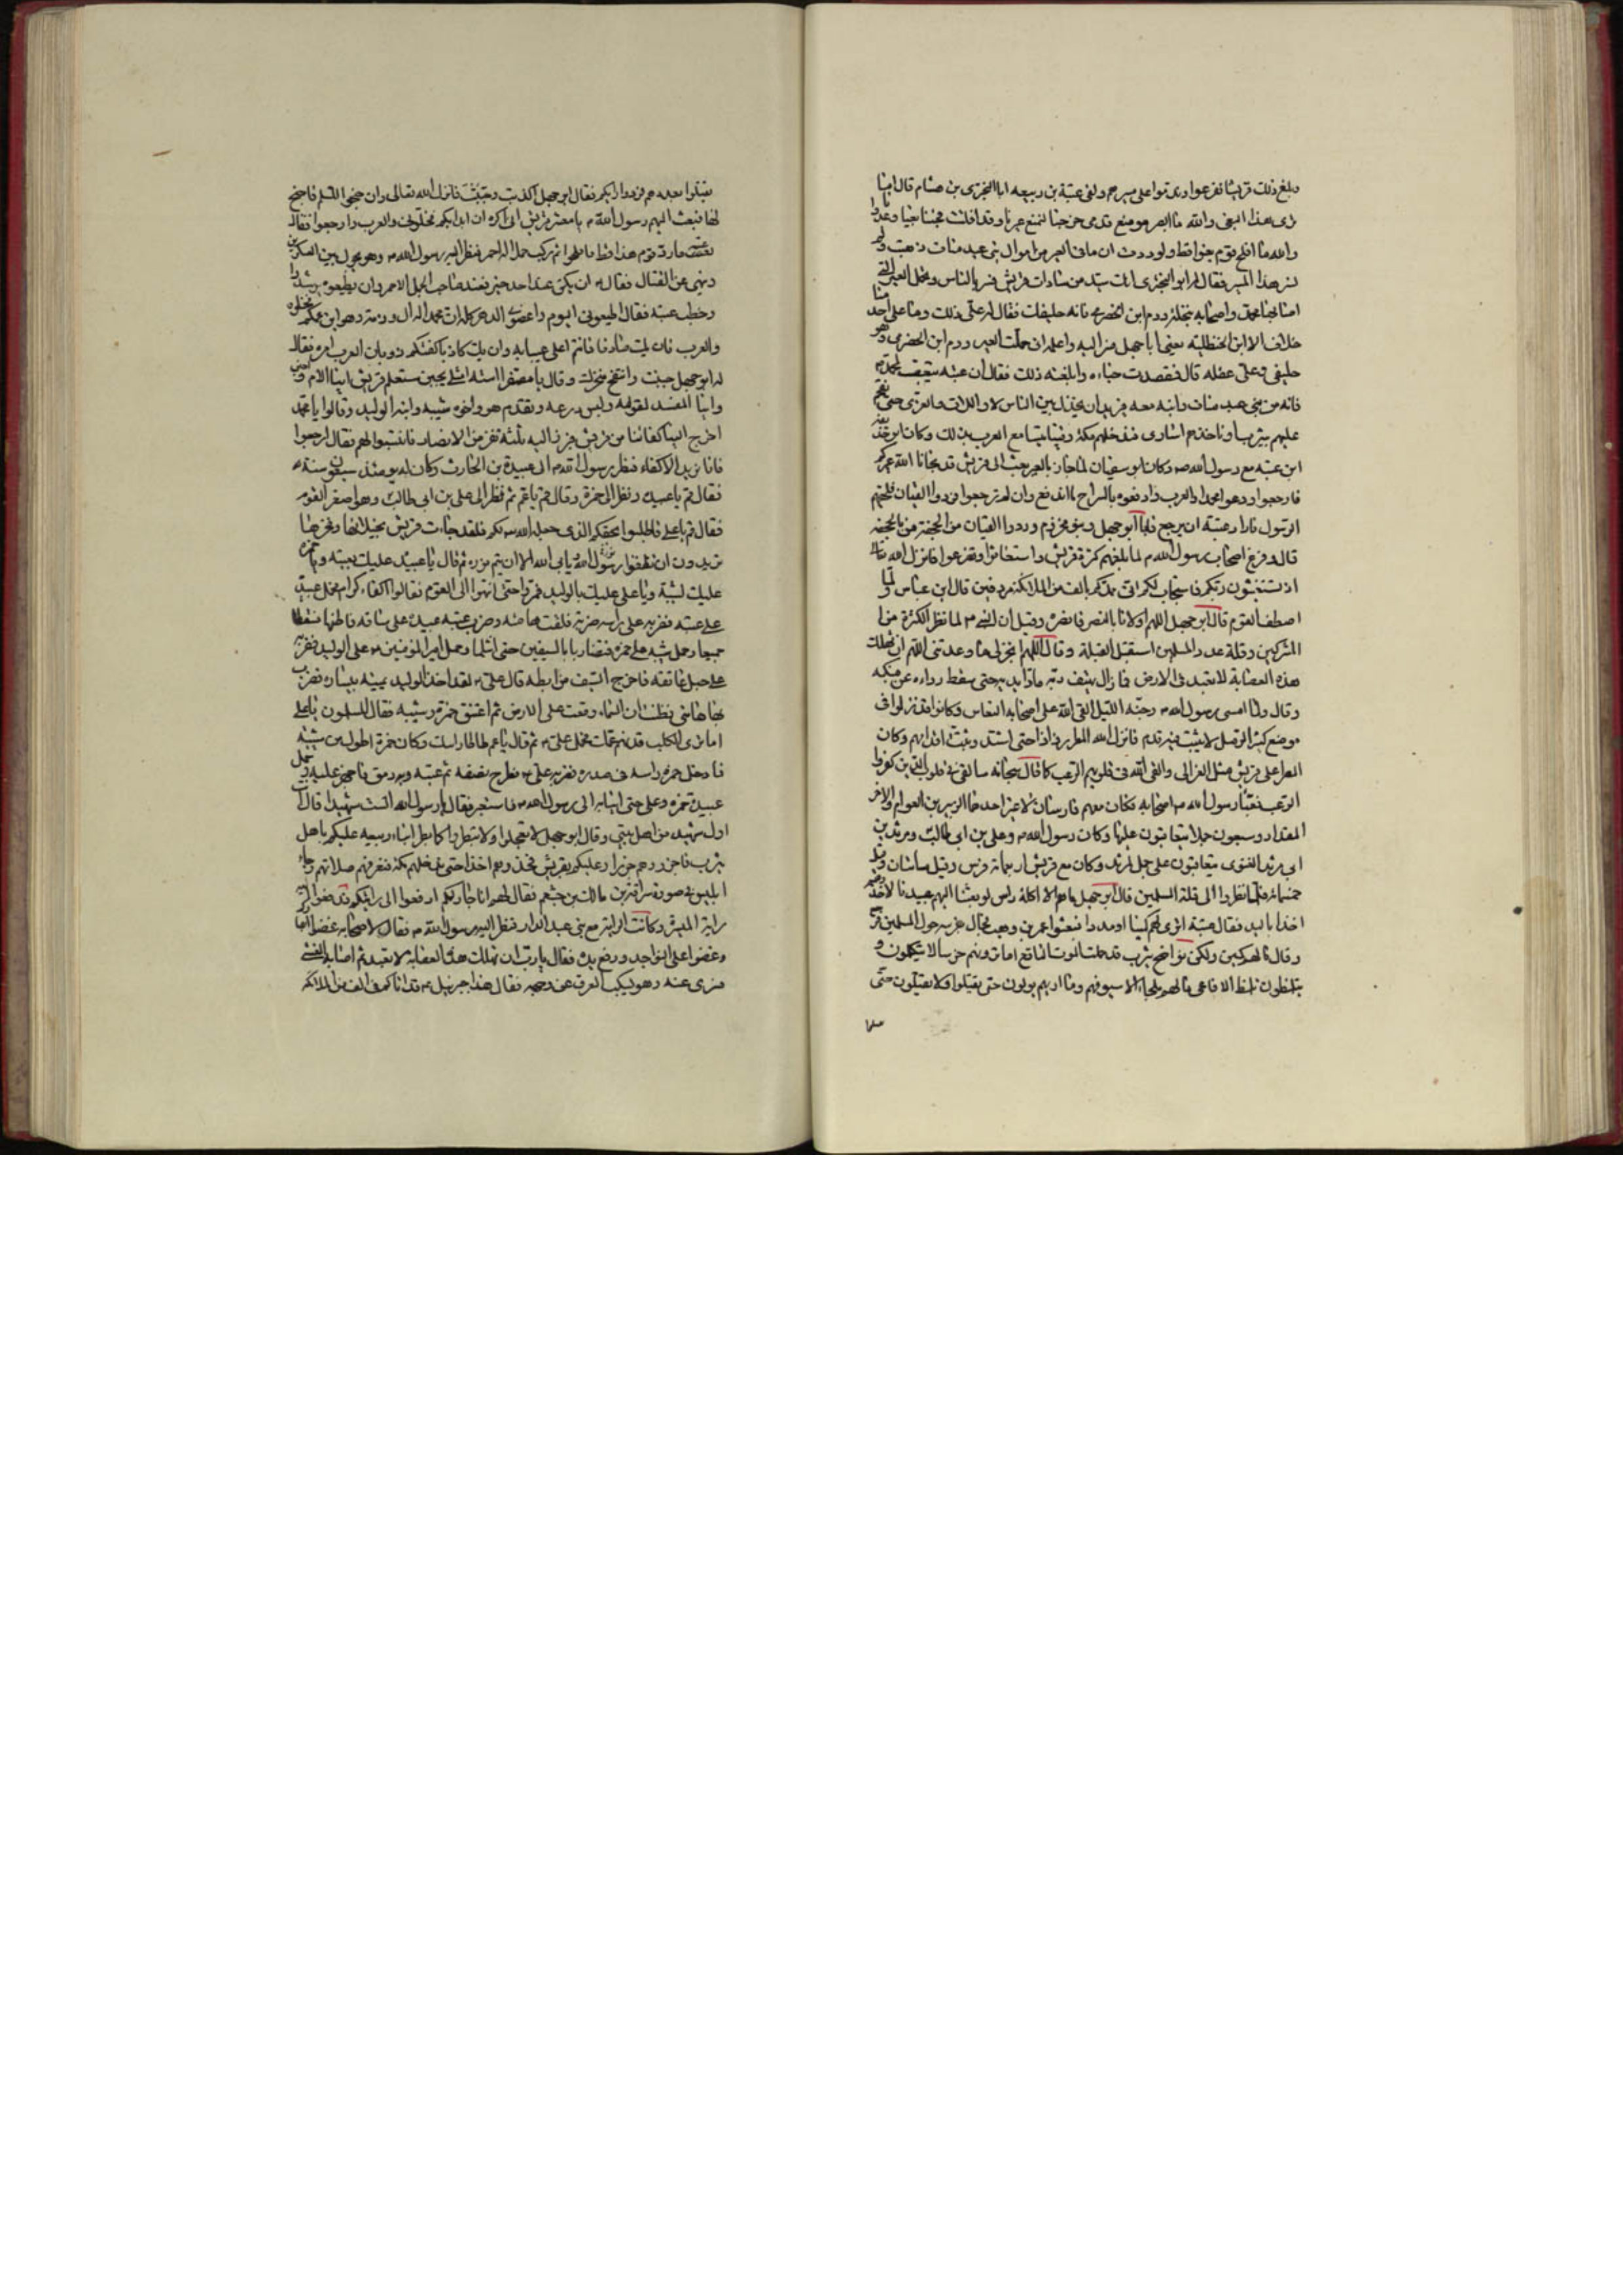 وبلغ ذلك قريشا ففزعوا وندموا على مسيرهم ولقى عتبة بن ربيعه ابا البخترى بن هشام فقال اما
ترى هذا البغى والله ما ابصر موضع قدمى خرجنا لنمنع عيرنا وقد افلتت فجئنا بغيا وعدوانا
والله ما افلح قوم بغوا قط ولوددت ان ما فى العير من اموال بنى عبد مناف ذهبت ولم
نسر هذا المسير فقال له ابو البخترى انك سيد من سادات قريش فسر بالناس وتحمل العير التى
اصابها محمد واصحابه بنخلة ودم ابن الحضرمى فانه حليفك فقال له على ذلك وما على احد منا
خلاف الا ابن الحنظليه يعنى ابا جهل فسر اليه واعلمه انى حملت العير ودم ابن الحضرمى وهو
حليفى وعلى عقله قال فقصدت خباءه وابلغته ذلك فقال ان عتبه يتعصب لمحمد
فانه من بنى عبد مناف وابنه معه يريد ان يخذل بين الناس لا واللات والعزى حتى نقحم
عليهم يثرب او ناخذهم اسارى فندخلهم مكة وتتسامع العرب بذلك وكان ابو حذيفة
ابن عتبه مع رسول الله ص وكان ابو سفيان لما جاز بالعير بعث الى قريش قد نجانا الله عيركم
فارجعوا ودعوا محمدا والعرب وادفعوه بالراح ما اندفع وان لم ترجعوا فردوا القيان فلحقهم
الرسول فاراد عتبة ان يرجع فابى ابو جهل وبنو مخزوم وردوا القيان من الجحفة
قال وفزع اصحاب رسول الله ص لما بلغهم كثرة قريش واستغاثوا وتضرعوا فانزل الله تعالى
اذ تستغيثون ربكم فاستجاب لكم انى ممدكم بالف من الملائكة مردفين قال ابن عباس لما
اصطف القوم قال ابو جهل اللهم اولانا بالنصر فانصره وقيل ان النبى ص لما نظر الى كثرة
المشركين وقلة عدد المسلمين استقبل القبلة وقال اللهم انجز لى ما وعدتنى اللهم ان تهلك
هذه العصابة لا تعبد فى الارض فما زال يهتف ربه مادا يديه حتى سقط رداءه عن منكبه
وقال ولما امسى رسول الله ص وجنه الليل القى الله على اصحابه النعاس وكانوا قد نزلوا فى
موضع كثير الرمل لا يثبت فيه قدم فانزل الله المطر رذاذا حتى اشتد وثبت اقدامهم وكان
المطر على قريش مثل العزالى والقى الله فى قلوبهم الرعب كما قال سبحانه سالقى فى قلوب الذين كفروا
الرعب فعبأ رسول الله ص اصحابه فكان معهم فارسان لا غير احدهما الزبير بن العوام والاخر
المقداد وسبعون جملا يتعاقبون عليها وكان رسول الله ص وعلى بن ابى طالب ومرثد بن
ابى مرثد الغنوى يتعاقبون على جمل لمرثد وكان مع قريش اربعمائة فرس وقيل مائتان
فلما نظروا الى قلة المسلمين قال ابو جهل ما هم الا اكلة راس لو بعثنا اليهم عبيدنا لاخذوهم
اخذا باليد فقال عتبة اترى لهم كمينا او مددا فبعثوا عمر بن وهب فجال بفرسه حول المسلمين ثم
وقال ما لهم كمين ولكن نواضح يثرب قد حملت الموت الناقع اما ترونهم خرسا لا يتكلمون و
يتلمظون تلمظ الافاعى ما لهم ملجأ الا سيوفهم وما اريهم يولون حتى يقتلوا ولا يقتلون حتى
يقتلوا بعددهم فردوا رايكم فقال ابو جهل كذبت وجبنت فانزل الله تعالى وان جنحوا للسلم فاجنح
لها فبعث اليهم رسول الله ص يا معشر قريش انى اكره ان ابدا بكم فخلونى والعرب وارجعوا فقال
عتبه ما رد قوم هذا قط فافلحوا ثم ركب جملا له احمر فنظر اليه رسول الله ص وهو يجول بين العسكرين
وينهى عن القتال فقال ص ان يكن عند احد خير فعند صاحب الجمل الاحمر وان يطيعوه يرشدوا
وخطب عتبه فقال اطيعونى اليوم واعصونى الدهر كله ان محمدا له ال وذمة وهو ابن عمكم فخلوه
والعرب فان يك صادقا فانتم اعلى عينا به وان يك كاذبا كفتكم ذوبان العرب امره فقال
له ابو جهل جبنت وانتفخ سحرك وقال يا مصفرا استه امثلى يجبن ستعلم قريش اينا الام واجبن
واينا المفسد لقومه ولبس درعه وتقدم هو واخوه شيبه وابنه الوليد وقالوا يا محمد
اخرج الينا اكفائنا من قريش فبرز اليه ثلثة نفر من الانصار فانتسبوا لهم فقال ارجعوا
فانا نريد الاكفاء فنظر رسول الله ص الى عبيدة بن الحارث وكان له يومئذ سبعون سنة
فقال قم يا عبيده ونظر الى حمزة وقال قم يا عم ثم نظر الى على بن ابى طالب وهو اصغر القوم
فقال قم يا على فاطلبوا بحقكم الذى جعله الله لكم فلقد جاءت قريش بخيلائها وفخرها
تريد ان تطفئ نور الله ويابى الله الا ان يتم نوره ثم قال يا عبيدة عليك بعتبه ويا حمزه
عليك بشيبة ويا على عليك بالوليد فمروا حتى انتهوا الى القوم فقالوا اكفاء كرام فحمل عبيده
على عتبه فضربه على راسه ضربة فلقت هامته وضرب عتبه عبيدة على ساقه فاطنها فسقطا
جميعا وحمل شيبه على حمزه فتضاربا بالسيفين حتى انثلما وحمل امير المؤمنين ع على الوليد فضربه
على حبل عاتقه فاخرج السيف من ابطه قال على ع لقد اخذ الوليد يمينه بيساره فضرب
بها هامتى فظننت ان السماء وقعت على الارض ثم اعتنق حمزة وشيبه فقال المسلمون يا على
اما ترى الكلب قد نهز عمك فحمل على ع ثم قال يا عم طاطا راسك وكان حمزة اطول من شيبه
فادخل حمزه راسه فى صدره فضربه على ع فطرح نصفه ثم عتبه وبه رمق فاجهز عليه وحمل
عبيدة حمزه وعلى حتى اتيا به الى رسول الله ص فاستعبر فقال يا رسول الله الست شهيدا قال انت
اول شهيد من اهل بيتى وقال ابو جهل لا تعجلوا ولا تبطروا كما بطر ابناء ربيعه عليكم باهل
يثرب فاجزروهم جزرا وعليكم بقريش فخذوهم اخذا حتى ندخلهم مكة فنعرفهم ضلالتهم وجاء
ابليس فى صورة سراقة بن مالك بن جعشم فقال لهم انا جار لكم ادفعوا الى رايتكم فدفعوا اليه
راية الميسرة وكانت الراية مع بنى عبد الدار فنظر اليه رسول الله ص فقال لاصحابه غضوا ابصاركم
وعضوا على النواجد ورفع يده فقال يا رب ان تهلك هذه العصابه لا تعبد ثم اصابه الغشى
فسرى عنه وهو يسكب العرق عن وجهه فقال هذا جبرئيل ع قد اتاكم فى الف من الملائكة